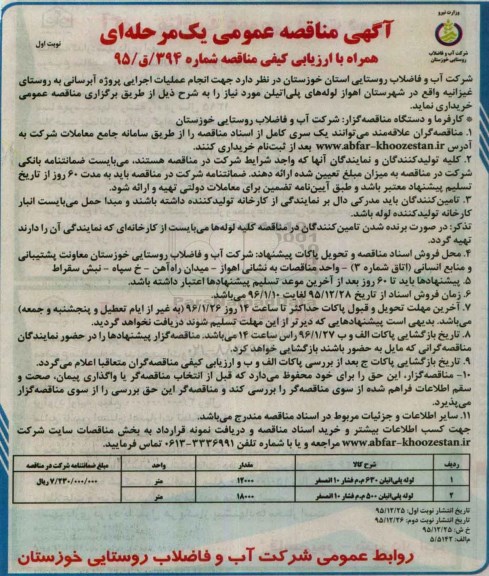 وزارت نیرو
شرکت آب و فاضلاب
روستایی خوزستان
نوبت اول
آگهی مناقصه عمومی یک‌مرحله‌ای
همراه با ارزیابی کیفی مناقصه شماره ۳۹۴/ق/۹۵
شرکت آب و فاضلاب روستایی استان خوزستان در نظر دارد جهت انجام عملیات اجرایی پروژه آبرسانی به روستای
غیزانیه واقع در شهرستان اهواز لوله‌های پلی‌اتیلن مورد نیاز را به شرح ذیل از طریق برگزاری مناقصه عمومی
خریداری نماید.
* کارفرما و دستگاه مناقصه‌گزار: شرکت آب و فاضلاب روستایی خوزستان
۱. مناقصه‌گران علاقه‌مند می‌توانند یک سری کامل از اسناد مناقصه را از طریق سامانه جامع معاملات شرکت به
آدرس www.abfar-khoozestan.ir بعد از ثبت‌نام خریداری کنند.
۲. کلیه تولیدکنندگان و نمایندگان آنها که واجد شرایط شرکت در مناقصه هستند، می‌بایست ضمانتنامه بانکی
شرکت در مناقصه به میزان مبلغ تعیین شده ارائه دهند. ضمانتنامه شرکت در مناقصه باید به مدت ۶۰ روز از تاریخ
تسلیم پیشنهاد معتبر باشد و طبق آیین‌نامه تضمین برای معاملات دولتی تهیه و ارائه شود.
۳. تامین‌کنندگان باید مدرکی دال بر نمایندگی از کارخانه تولیدکننده داشته باشند و مبدا حمل می‌بایست انبار
کارخانه تولیدکننده لوله باشد.
تذکر: در صورت برنده شدن تامین‌کنندگان در مناقصه کلیه لوله‌ها می‌بایست از کارخانه‌ای که نمایندگی آن را دارند
تهیه گردد.
۴. محل فروش اسناد مناقصه و تحویل پاکات پیشنهاد: شرکت آب و فاضلاب روستایی خوزستان معاونت پشتیبانی
و منابع انسانی (اتاق شماره ۳) - واحد مناقصات به نشانی اهواز - میدان راه‌آهن - خ سپاه - نبش سقراط
۵. پیشنهادها باید تا ۶۰ روز بعد از آخرین موعد تسلیم پیشنهادها اعتبار داشته باشد.
۶. زمان فروش اسناد از تاریخ ۹۵/۱۲/۲۸ لغایت ۹۶/۱/۱۰ می‌باشد.
۷. آخرین مهلت تحویل و قبول پاکات حداکثر تا ساعت ۱۴ روز ۹۶/۱/۲۶ (به غیر از ایام تعطیل و پنجشنبه و جمعه)
می‌باشد. بدیهی است پیشنهادهایی که دیرتر از این مهلت تسلیم شوند دریافت نخواهد گردید.
۸. تاریخ بازگشایی پاکات الف و ب ۹۶/۱/۲۷ راس ساعت ۱۴ می‌باشد. مناقصه‌گزار پیشنهادها را در حضور نمایندگان
مناقصه‌گرانی که مایل به حضور باشند بازگشایی خواهد کرد.
۹. تاریخ بازگشایی پاکات ج بعد از بررسی پاکات الف و ب و ارزیابی کیفی مناقصه‌گران متعاقبا اعلام می‌گردد.
۱۰- مناقصه‌گزار، این حق را برای خود محفوظ می‌دارد که قبل از انتخاب مناقصه‌گر یا واگذاری پیمان، صحت و
سقم اطلاعات فراهم شده از سوی مناقصه‌گر را بررسی کند و مناقصه‌گر این حق بررسی را از سوی مناقصه‌گزار
می‌پذیرد.
۱۱. سایر اطلاعات و جزئیات مربوط در اسناد مناقصه مندرج می‌باشد.
جهت کسب اطلاعات بیشتر و خرید اسناد مناقصه و دریافت نمونه قرارداد به بخش مناقصات سایت شرکت
www.abfar-khoozestan.ir مراجعه و یا با شماره تلفن ۳۳۳۶۹۹۱-۰۶۱۳ تماس فرمایید.
ردیف شرح کالا مقدار واحد مبلغ ضمانتنامه شرکت در مناقصه
۱ لوله پلی‌اتیلن ۶۳۰ م.م فشار ۱۰ اتمسفر ۱۲۰۰۰ متر ۷/۲۳۰/۰۰۰/۰۰۰ ریال
۲ لوله پلی‌اتیلن ۵۰۰ م.م فشار ۱۰ اتمسفر ۱۸۰۰۰ متر
تاریخ انتشار نوبت اول: ۹۵/۱۲/۲۵
تاریخ انتشار نوبت دوم: ۹۵/۱۲/۲۶
خ ش: ۹۵/۱۲/۲۵
م‌الف: ۵/۵۱۴۲
روابط عمومی شرکت آب و فاضلاب روستایی خوزستان